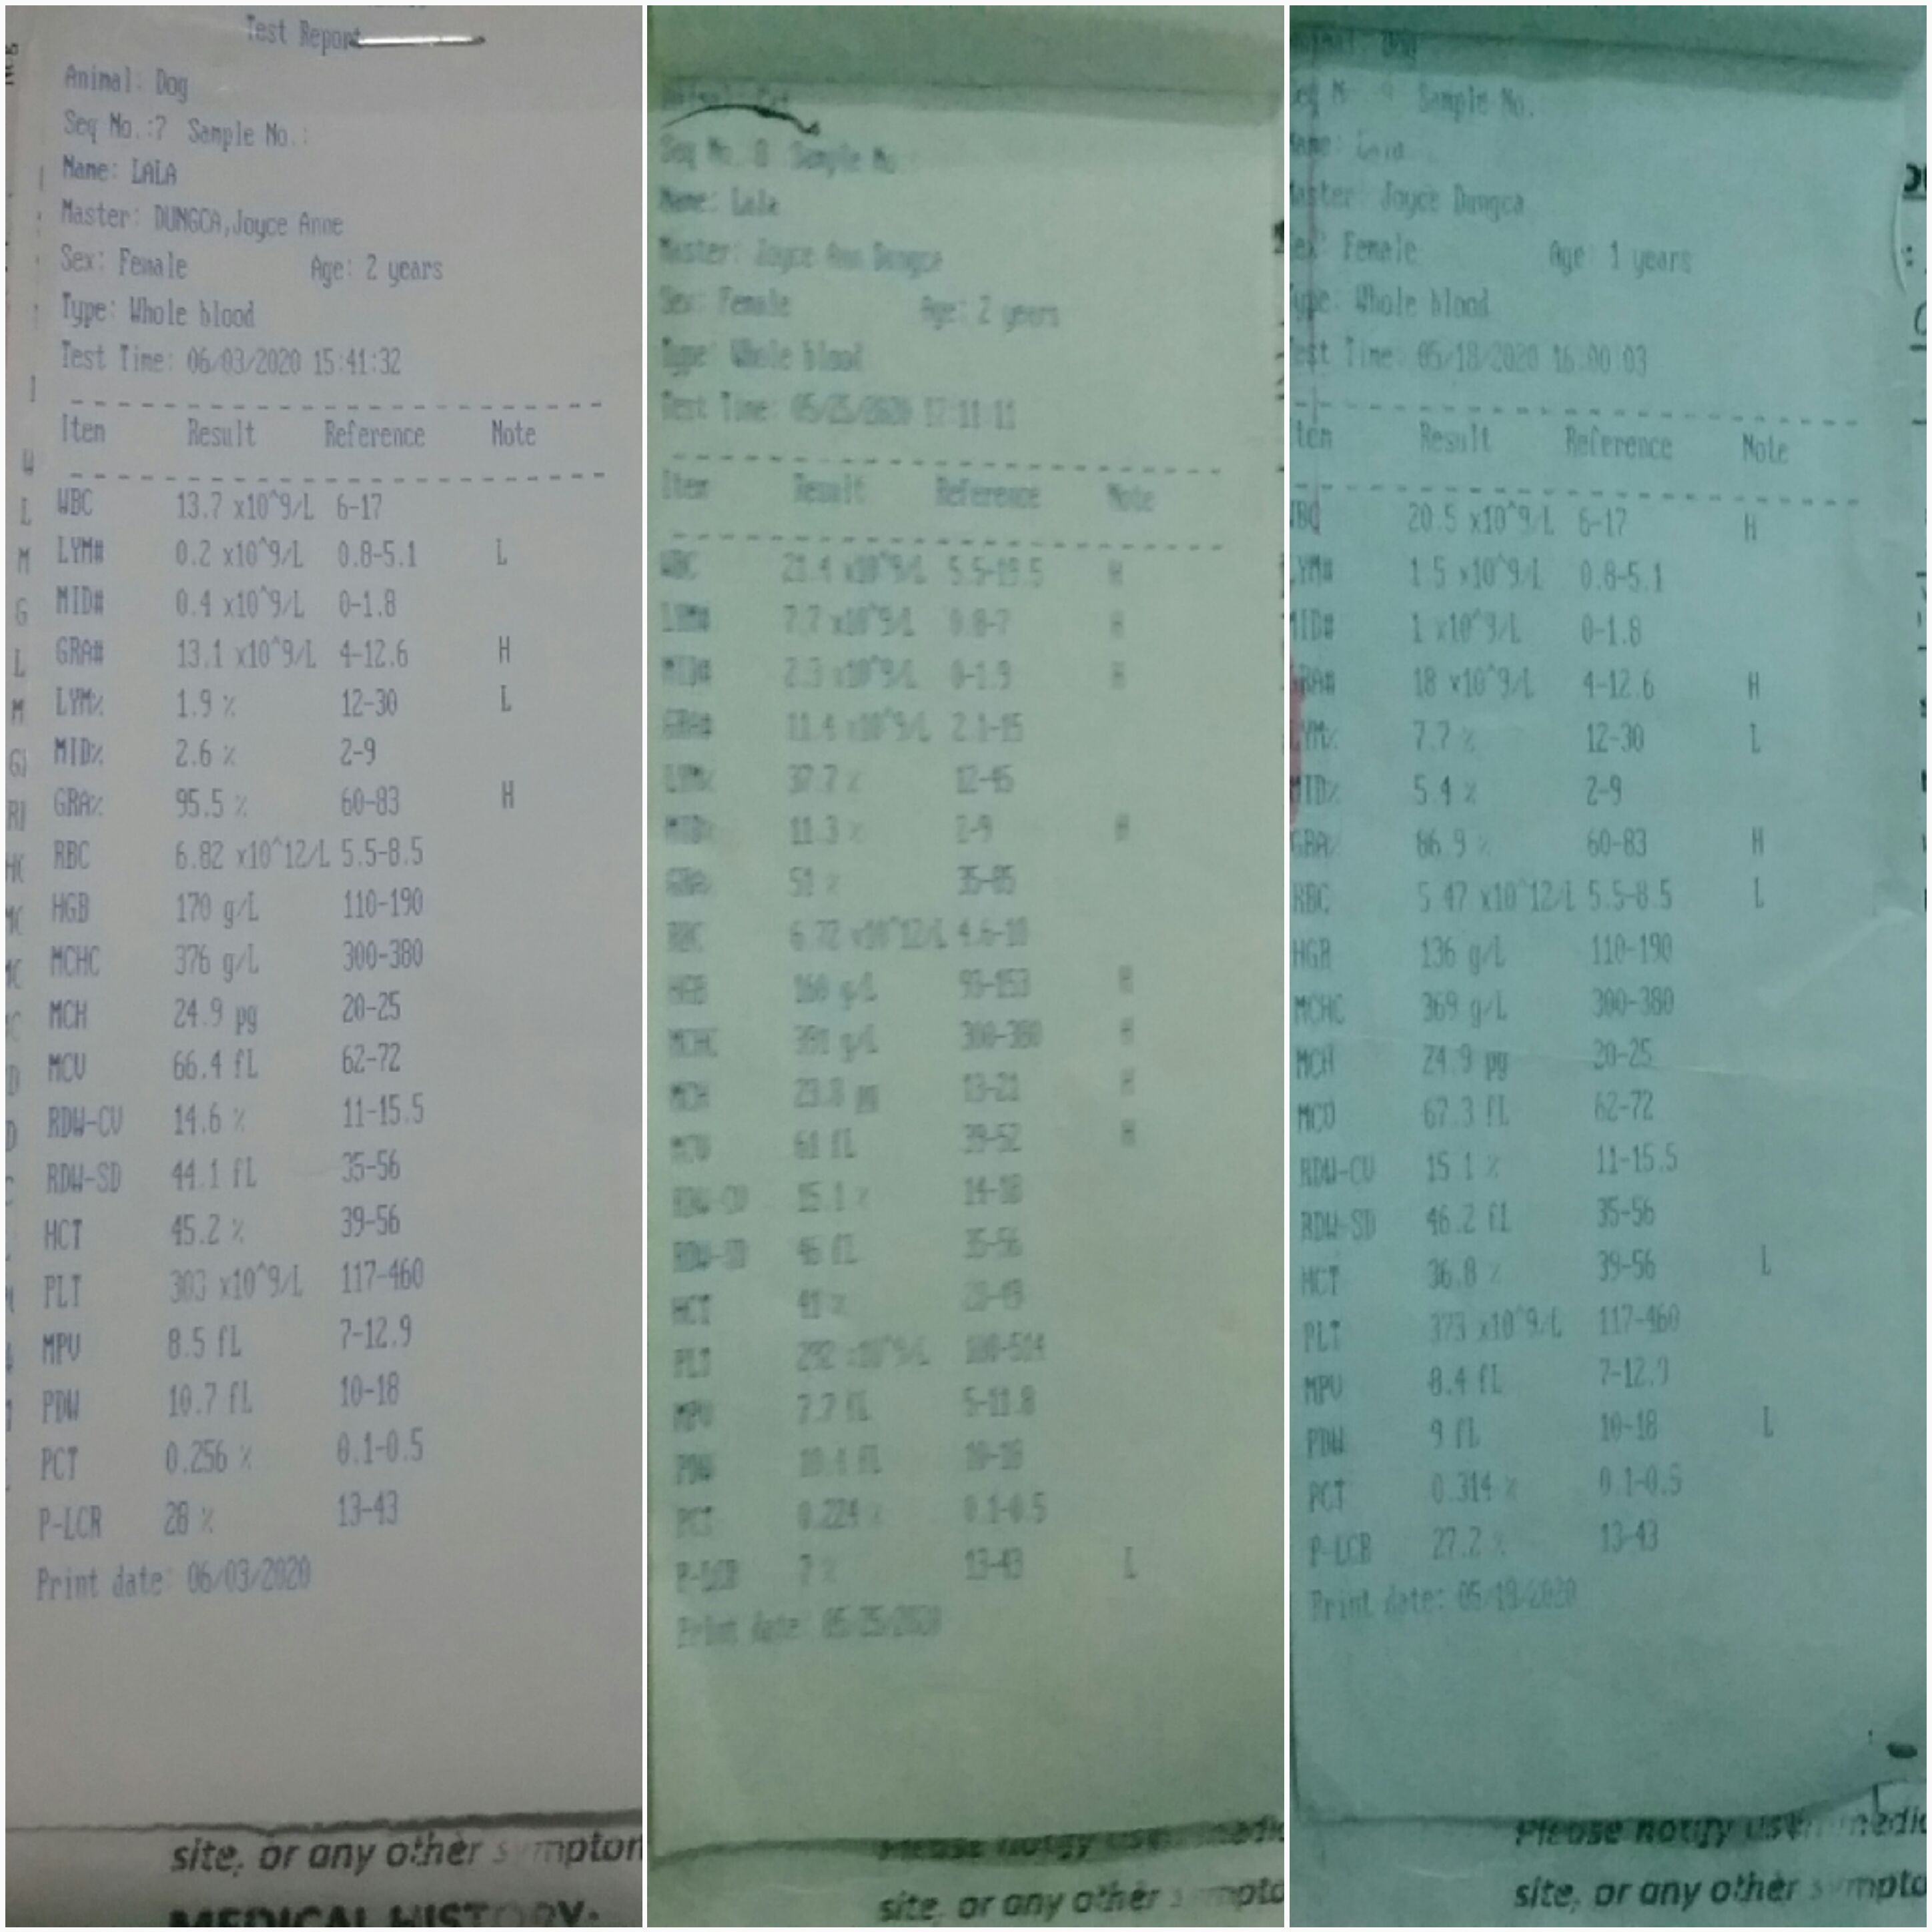 Test Report
Animal: Dog
Seq No.:7 Sample No.:
Name: LALA
Master: DUNGCA,Joyce Anne
Sex: Female Age: 2 years
Type: Whole blood
Test Time: 06/03/2020 15:41:32
Item Result Reference Note
WBC 13.7 x10^9/L 6-17
LYM# 0.2 x10^9/L 0.8-5.1 L
MID# 0.4 x10^9/L 0-1.8
GRA# 13.1 x10^9/L 4-12.6 H
LYM% 1.9 % 12-30 L
MID% 2.6 % 2-9
GRA% 95.5 % 60-83 H
RBC 6.82 x10^12/L 5.5-8.5
HGB 170 g/L 110-190
MCHC 376 g/L 300-380
MCH 24.9 pg 20-25
MCV 66.4 fL 62-72
RDW-CV 14.6 % 11-15.5
RDW-SD 44.1 fL 35-56
HCT 45.2 % 39-56
PLT 303 x10^9/L 117-460
MPV 8.5 fL 7-12.9
PDW 10.7 fL 10-18
PCT 0.256 % 0.1-0.5
P-LCR 28 % 13-43
Print date: 06/03/2020
site, or any other
MEDICAL HISTORY:
Seq No. 8 Sample No
Name: Lala
Master: Joyce Ann Dungca
Sex: Female Age: 2 years
Type: Whole blood
Test Time: 05/25/2020 17:11:11
Item Result Reference Note
WBC 21.4 x10^9/L 5.5-19.5 H
LYM# 7.7 x10^9/L 0.8-7 H
MID# 2.3 x10^9/L 0-1.9 H
GRA# 11.4 x10^9/L 2.1-15
LYM% 37.7 % 12-45
MID% 11.3 % 2-9 H
GRA% 51 % 35-85
RBC 6.72 x10^12/L 4.6-10
HGB 160 g/L 93-153 H
MCHC g/L 300-380 H
MCH 23.8 pg 13-21 H
MCV 61 fL 39-52 H
RDW-CV 15.1 % 14-18
RDW-SD 46 fL 35-56
HCT 41 % 28-49
PLT 292 x10^9/L 100-514
MPV 7.7 fL 5-11.8
PDW 10.4 fL 10-18
PCT 0.224 % 0.1-0.5
P-LCR 7 % 13-43 L
Print date: 05/25/2020
Please notify
site, or any other
Sample No.
Master: Joyce Dungca
Sex: Female Age: 1 years
Type: Whole blood
Test Time: 05/18/2020 16:00:03
Item Result Reference Note
WBC 20.5 x10^9/L 6-17 H
LYM# 1.5 x10^9/L 0.8-5.1
MID# 1 x10^9/L 0-1.8
GRA# 18 x10^9/L 4-12.6 H
LYM% 7.7 % 12-30 L
MID% 5.4 % 2-9
GRA% 86.9 % 60-83 H
RBC 5.47 x10^12/L 5.5-8.5 L
HGB 136 g/L 110-190
MCHC 369 g/L 300-380
MCH 24.9 pg 20-25
MCV 67.3 fL 62-72
RDW-CV 15.1 % 11-15.5
RDW-SD 46.2 fL 35-56
HCT 36.8 % 39-56 L
PLT 373 x10^9/L 117-460
MPV 8.4 fL 7-12.9
PDW 9 fL 10-18 L
PCT 0.314 % 0.1-0.5
P-LCR 27.2 % 13-43
Print date: 05/19/2020
Please notify
site, or any other